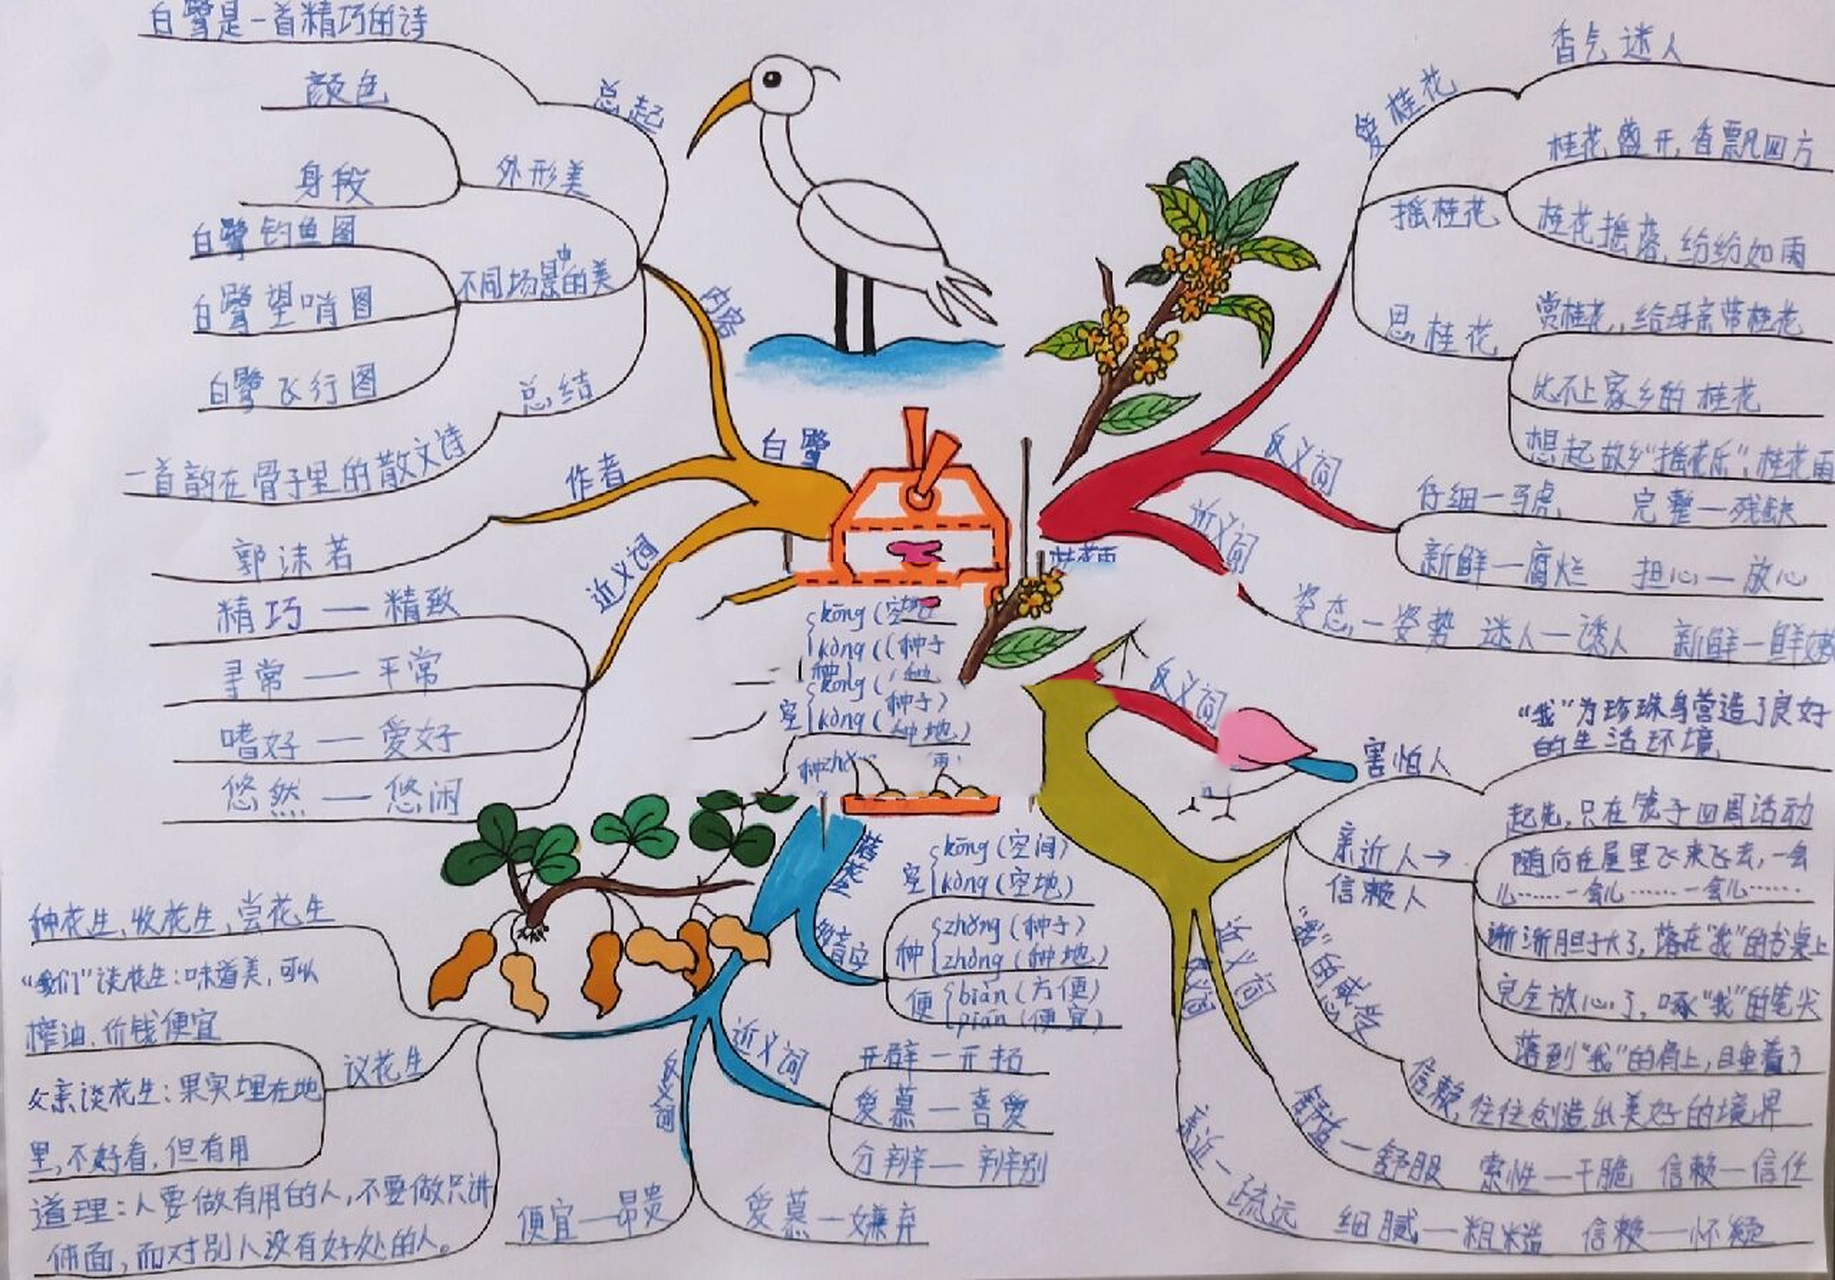 白鹭是一首精巧的诗
总起
颜色
身段
外形美
白鹭钓鱼图
白鹭望哨图
白鹭飞行图
不同场景中的美
总结
一首韵在骨子里的散文诗
内容
白鹭
作者
郭沫若
近义词
精巧——精致
寻常——平常
嗜好——爱好
悠然——悠闲
爱桂花
香气迷人
摇桂花
桂花盛开,香飘四方
桂花摇落,纷纷如雨
思桂花
赏桂花,给母亲带桂花
比不上家乡的桂花
想起故乡"摇花乐",桂花雨
反义词
仔细—马虎 完整—残缺
新鲜—腐烂 担心—放心
近义词
姿态—姿势 迷人—诱人 新鲜—鲜嫩
kōng(空地
kòng((种子
kōng(
空
kòng(种子)
种地)
反义词
害怕人
"我"为珍珠鸟营造了良好
的生活环境
亲近人→
信赖人
起先,只在笼子四周活动
随后在屋里飞来飞去,一会
儿……一会儿……一会儿……
渐渐胆子大了,落在"我"的书桌上
完全放心了,啄"我"的笔尖
落到"我"的肩上,睡着了
"我"的感受
信赖,往往创造出美好的境界
近义词
舒适—舒服 索性—干脆 信赖—信任
反义词
亲近—疏远 细腻—粗糙 信赖—怀疑
落花生
多音字
空
kōng(空间)
kòng(空地)
种
zhǒng(种子)
zhòng(种地)
便
biàn(方便)
pián(便宜)
近义词
开辟—开拓
爱慕—喜爱
分辨—辨别
反义词
便宜—昂贵
爱慕—嫌弃
种花生、收花生、尝花生
议花生
"我们"谈花生:味道美,可以
榨油,价钱便宜
父亲谈花生:果实埋在地
里,不好看,但有用
道理:人要做有用的人,不要做只讲
体面,而对别人没有好处的人。